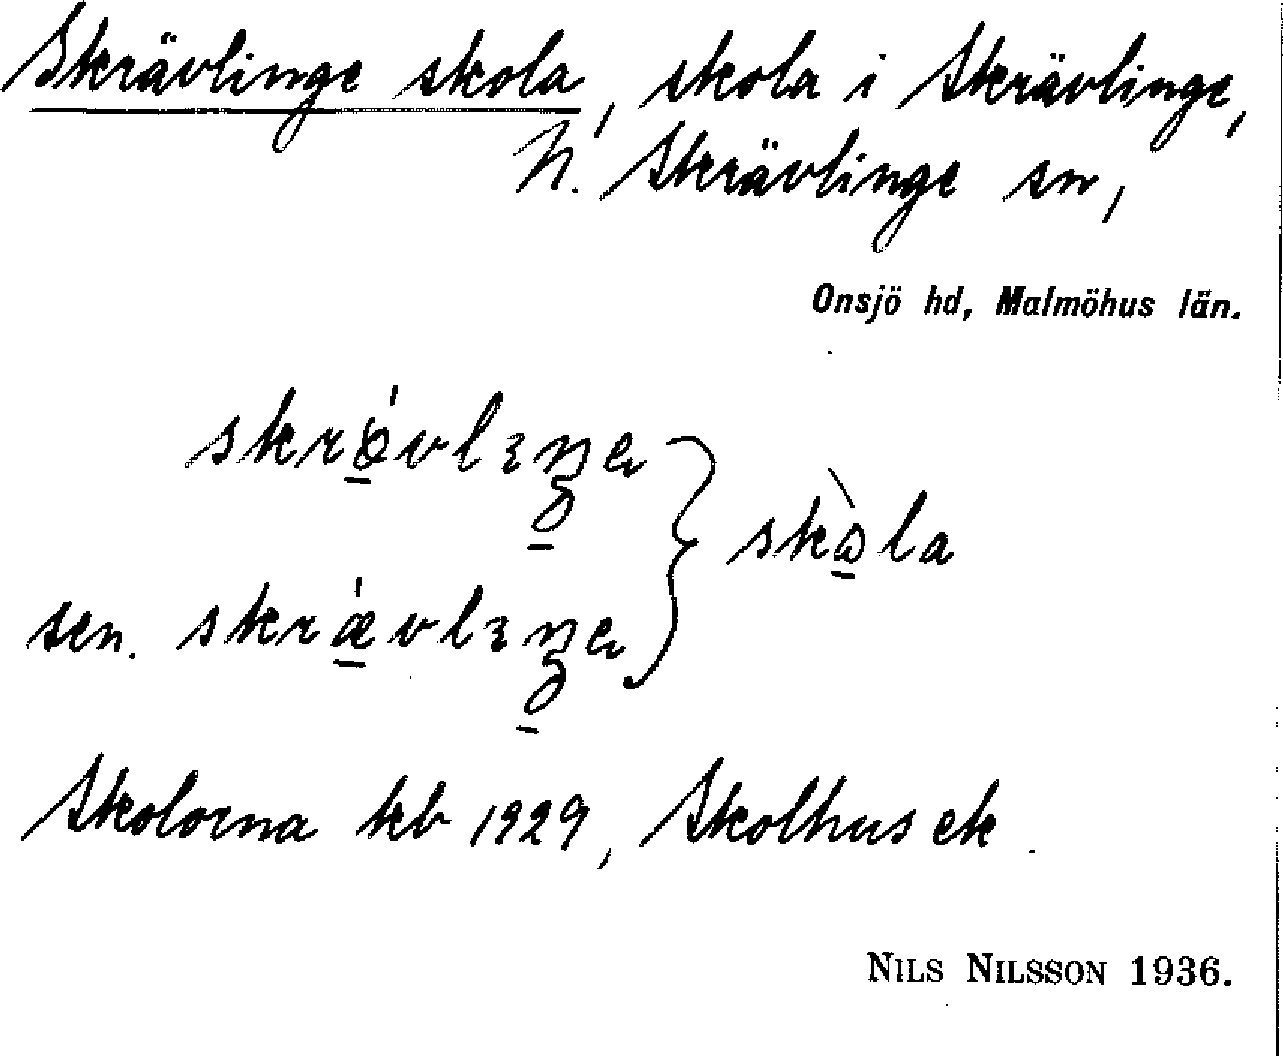 Skrävlinge skola, skola i Skrävlinge,
N. Skrävlinge sn,
Onsjö hd, Malmöhus län.
sen.
Skolorna kb 1929, Skolhus ek.
NILS NILSSON 1936.